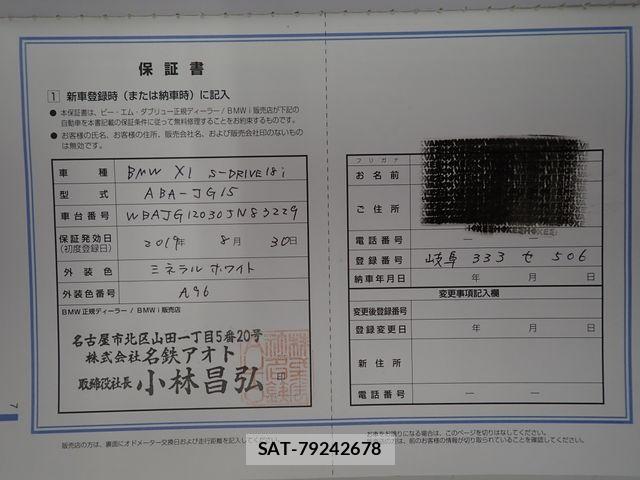 保証書
1 新車登録時（または納車時）に記入
● 本保証書は、ビー・エム・ダブリュー正規ディーラー / BMW i 販売店が下記の
自動車を本書記載の保証条件に従って無料修理することをお約束するものです。
● お客様の氏名、お客様の住所、販売会社名、および販売会社印のないもの
は無効です。
車種 BMW X1 S-DRIVE18i
型式 ABA-JG15
車台番号 WBAJG12030JN83229
保証発効日
(初度登録日) 2019年 8月 30日
外装色 ミネラルホワイト
外装色番号 A96
BMW 正規ディーラー / BMW i 販売店
名古屋市北区山田一丁目5番20号
株式会社名鉄アオト
取締役社長 小林昌弘 印
フリガナ
お名前
ご住所
電話番号 — —
登録番号 岐阜 333 せ 506
納車年月日 年 月 日
変更事項記入欄
変更後登録番号
登録変更日 年 月 日
新住所
電話番号 — —
7
販売店の方は、裏面にオドメーター交換日および走行距離を記入してください。
お車をお譲りになる場合は、このページを切りはなしてください。
販売店の方は、前のお客様の情報が切り取られていることを確認してください。
SAT-79242678